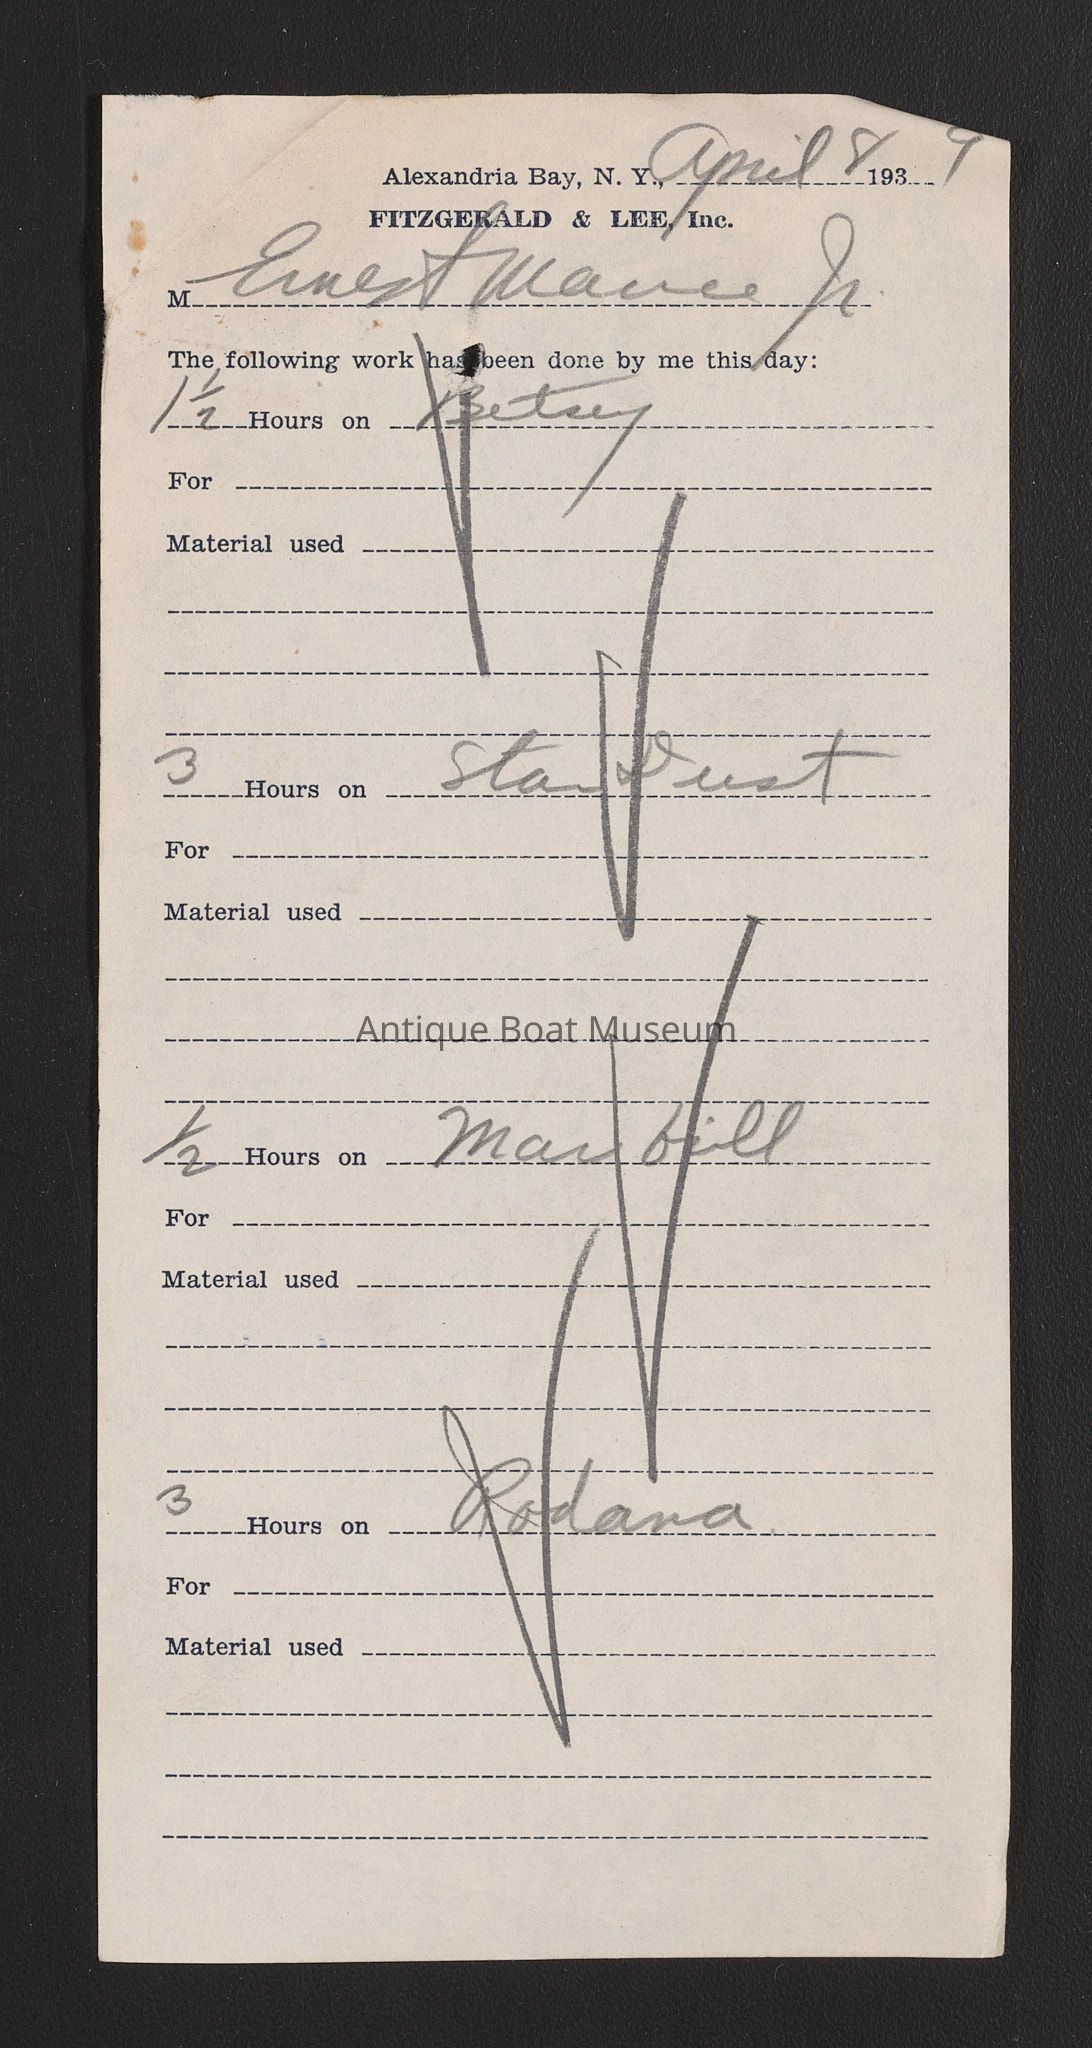 Alexandria Bay, N. Y., April 8 1939
FITZGERALD & LEE, Inc.
M Ernest Mance Jr
The following work has been done by me this day:
1 1/2 Hours on Betsy
For
Material used
3 Hours on Star Dust
For
Material used
Antique Boat Museum
1/2 Hours on Mar bill
For
Material used
3 Hours on Rodana
For
Material used